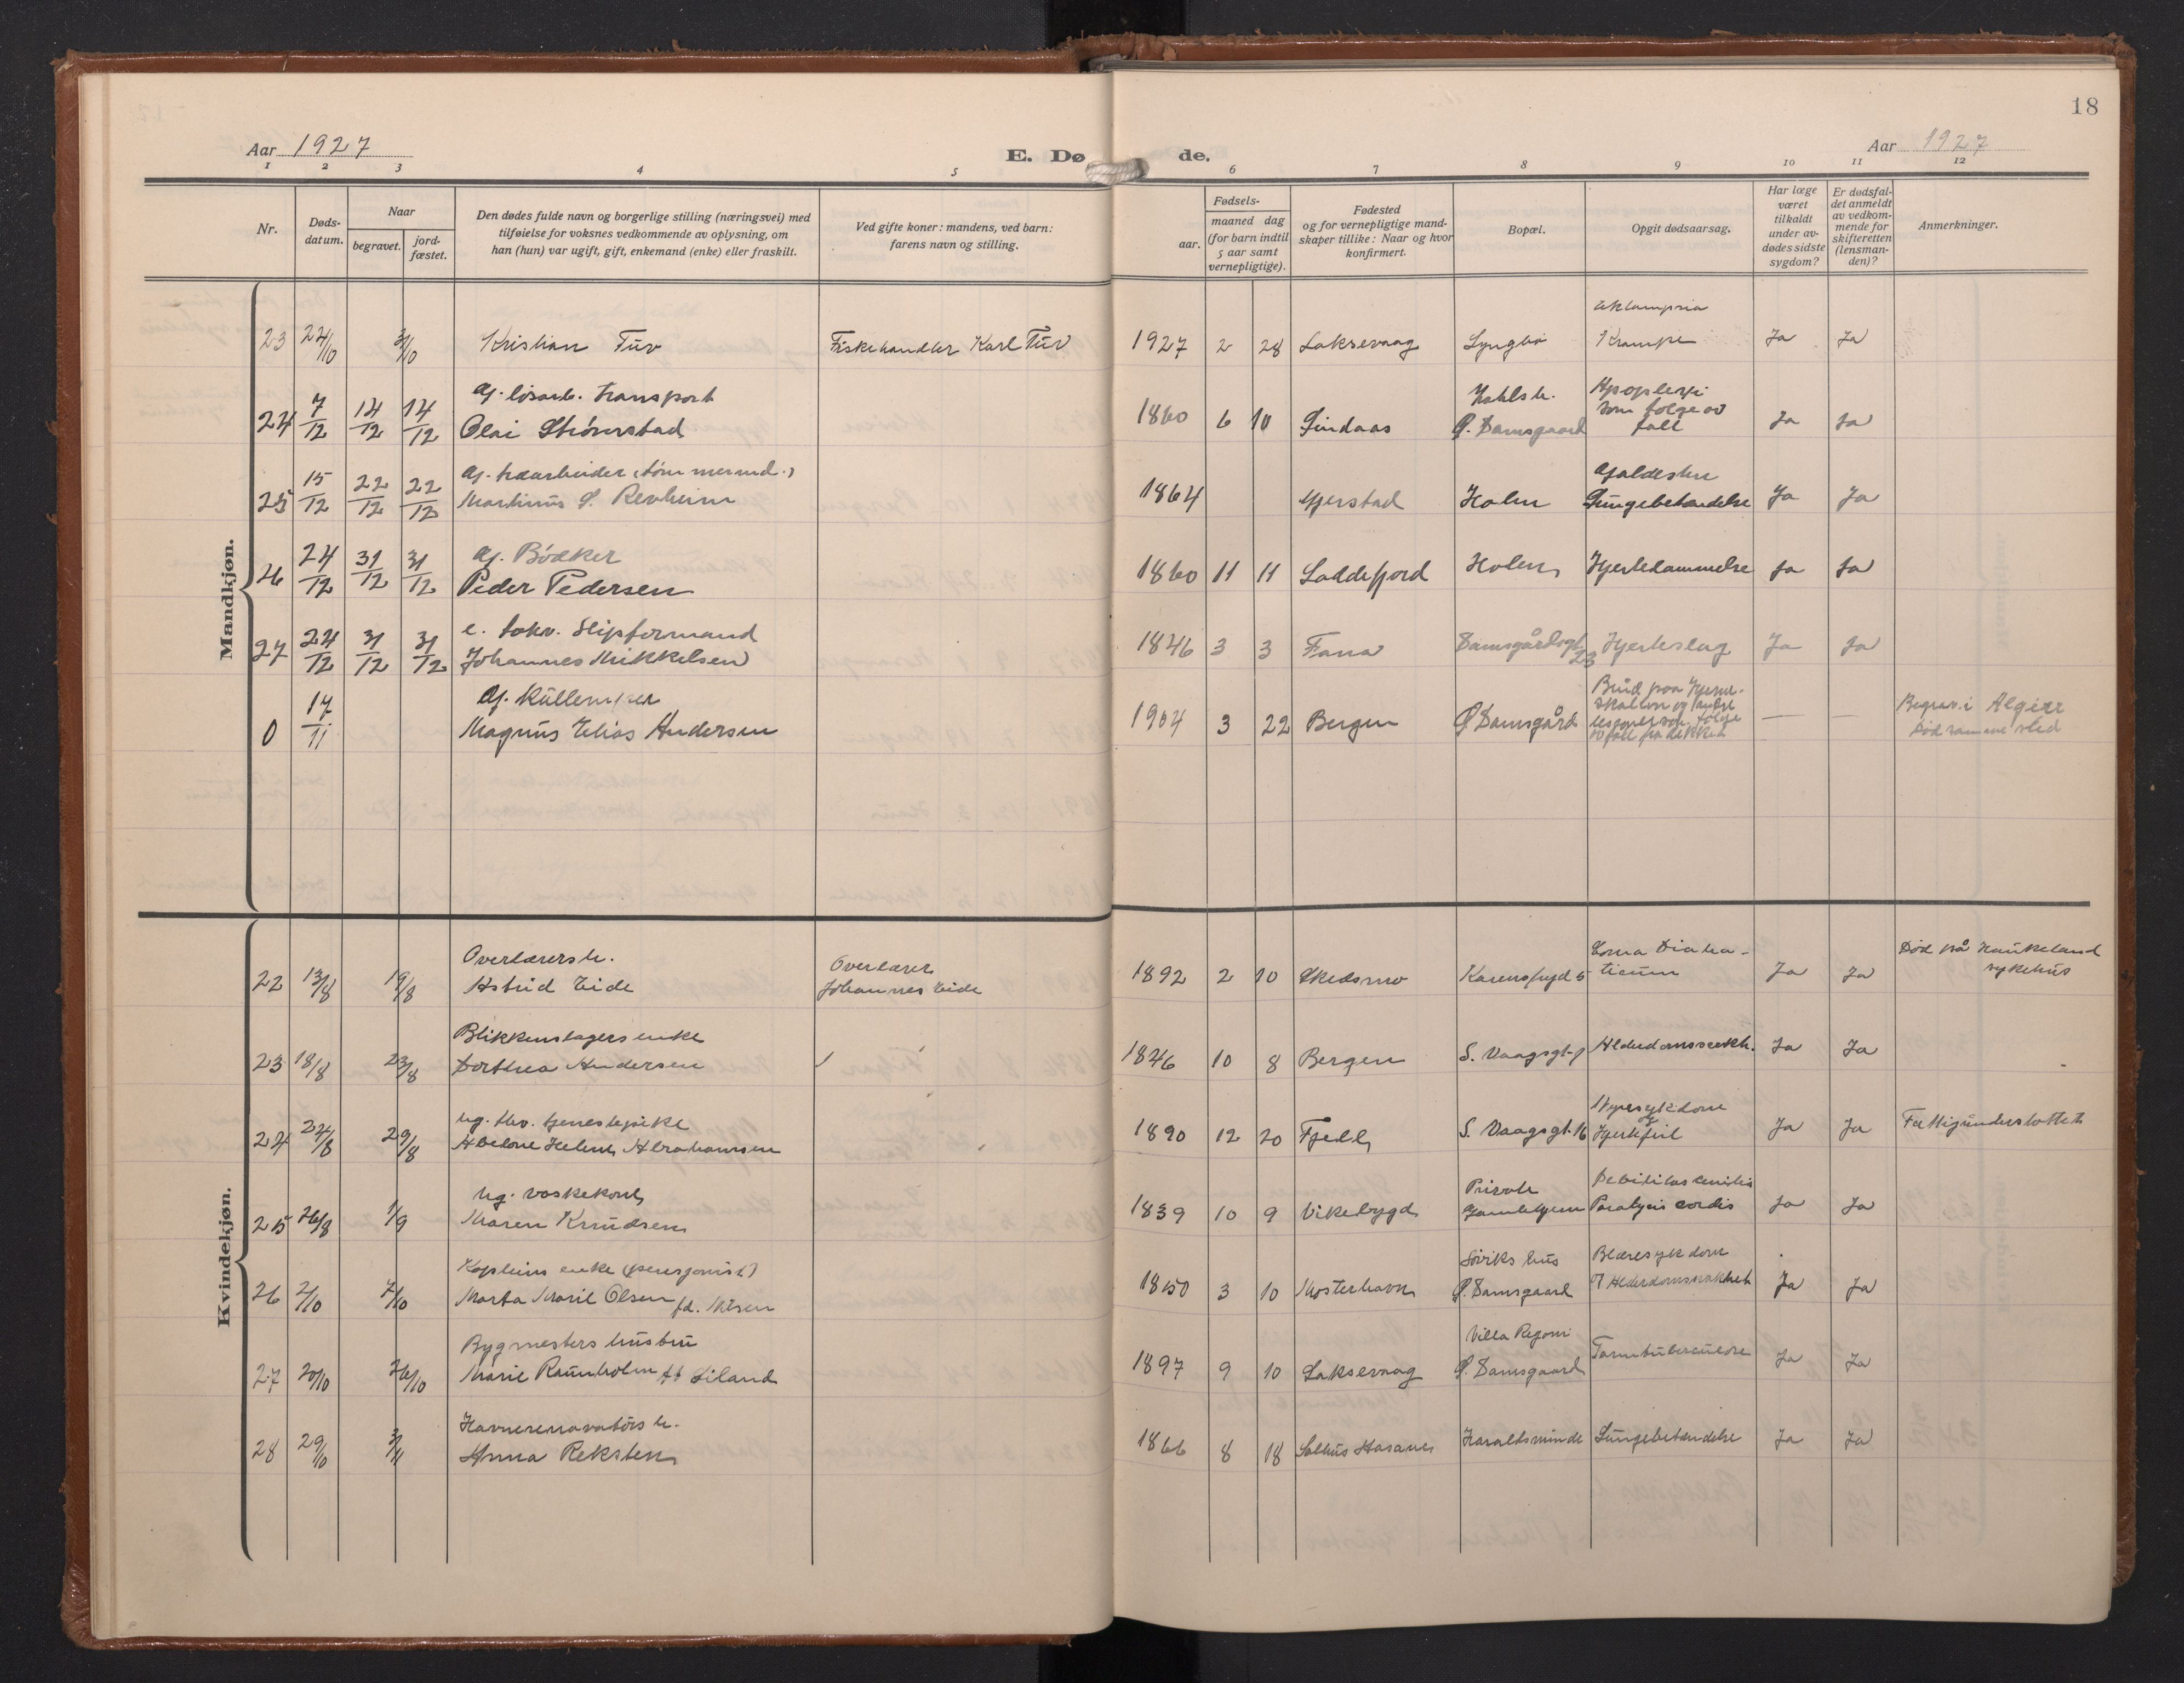 18
Aar 1927
E. Dø de.
Aar 1927
1 2 3 4 5 6 7 8 9 10 11 12
Nr.
Døds-
datum.
Naar
begravet.
jord-
fæstet.
Den dødes fulde navn og borgerlige stilling (næringsvei) med
tilføielse for voksnes vedkommende av oplysning, om
han (hun) var ugift, gift, enkemand (enke) eller fraskilt.
Ved gifte koner: mandens, ved barn:
farens navn og stilling.
Fødsels-
aar.
maaned dag
(for barn indtil
5 aar samt
vernepligtige).
Fødested
og for vernepligtige mand-
skaper tillike: Naar og hvor
konfirmert.
Bopæl.
Opgit dødsaarsag.
Har læge
været
tilkaldt
under av-
dødes sidste
sygdom?
Er dødsfal-
det anmeldt
av vedkom-
mende for
skifteretten
(lensman-
den)?
Anmerkninger.
Mandkjøn.
eklampsia
23 24/10 3/10 Kristian Tuv Fiskehandler Karl Tuv 1927 2 28 Laksevaag Lyngbø Krampe Ja Ja
g. løsarb. transport
24 7/12 14/12 14/12 Olai Størerstad 1860 6 10 Lindaas
Kahlsh.
Ø. Damsgaard
Apopleksi
som følge av
fall
Ja Ja
g. træarbeider (tømmermd.)
25 15/12 22/12 22/12 Martinus S. Revheim 1864 Gjerstad Holen
Galdesten
Lungebetændelse
Ja Ja
g. Bødker
26 24/12 31/12 31/12 Peder Pedersen 1860 11 11 Loddefjord Holen Hjertelammelse Ja Ja
e. forhv. Slipformand
27 24/12 31/12 31/12 Johannes Mikkelsen 1846 3 3 Fana Damsgårdsgt. 23 Hjerteslag Ja Ja
g. Kullemper
0 17/11 Magnus Elias Andersen 1904 3 22 Bergen Ø Damsgård
Brud paa hjerne-
skallen og andre
som følge
av fall på dekket
— —
Begrav. i Algier
Død samme sted
Kvindekjøn.
Overlærersh.
22 13/8 19/8 Astrid Eide
Overlærer
Johannes Eide
1892 2 10 Skedsmo Karensfryd 5
Coma Diabe-
ticum
Ja Ja
Død på Haukeland
sykehus
Blikkenslagers enke
23 18/8 23/8 Dorthea Andersen 1846 10 8 Bergen S. Vaagsgt. 1 Alderdomssvakh. Ja Ja
ug. fhv. tjenestepike
24 24/8 29/8 Abelone Helene Abrahamsen 1890 12 20 Fjell S. Vaagsgt. 16
Nyresykdom
og
Hjertefeil
Ja Ja Fattigunderstøttet
ug. vaskekone
25 26/8 1/9 Maren Knudsen 1839 10 9 Vikebygd
Private
Gamlehjem
Debilitas senilis
Paralysis cordis
Ja Ja
Kapteins enke (pensjonist)
26 2/10 7/10 Marta Marie Olsen fd. Nilsen 1850 3 10 Mosterhavn
Søviks hus
Ø. Damsgaard
Blæresykdom
Alderdomssvakhet
Ja Ja
Bygmesters hustru
27 20/10 26/10 Marie Raunholm ff Liland 1897 9 10 Laksevaag
Villa Regoni
Ø. Damsgaard
Tarmtuberculose
Ja Ja
Havnerenovatørs h.
28 29/10 3/11 Anna Reksten 1866 8 18 Salhus Hasanes Haraldsminde Lungebetændelse Ja Ja